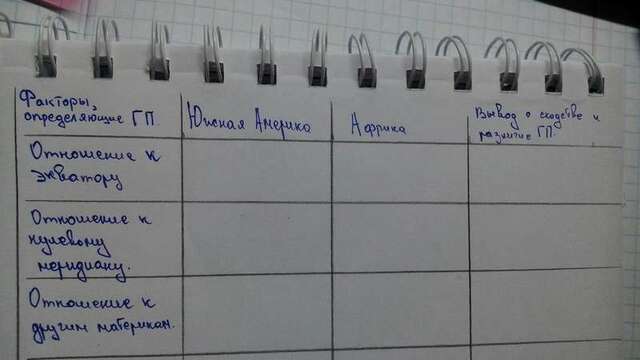 Факторы,
определяющие ГП
Южная Америка
Африка
Вывод о сходстве и
различие ГП.
Отношение к
экватору
Отношение к
нулевому
меридиану.
Отношение к
другим материкам.